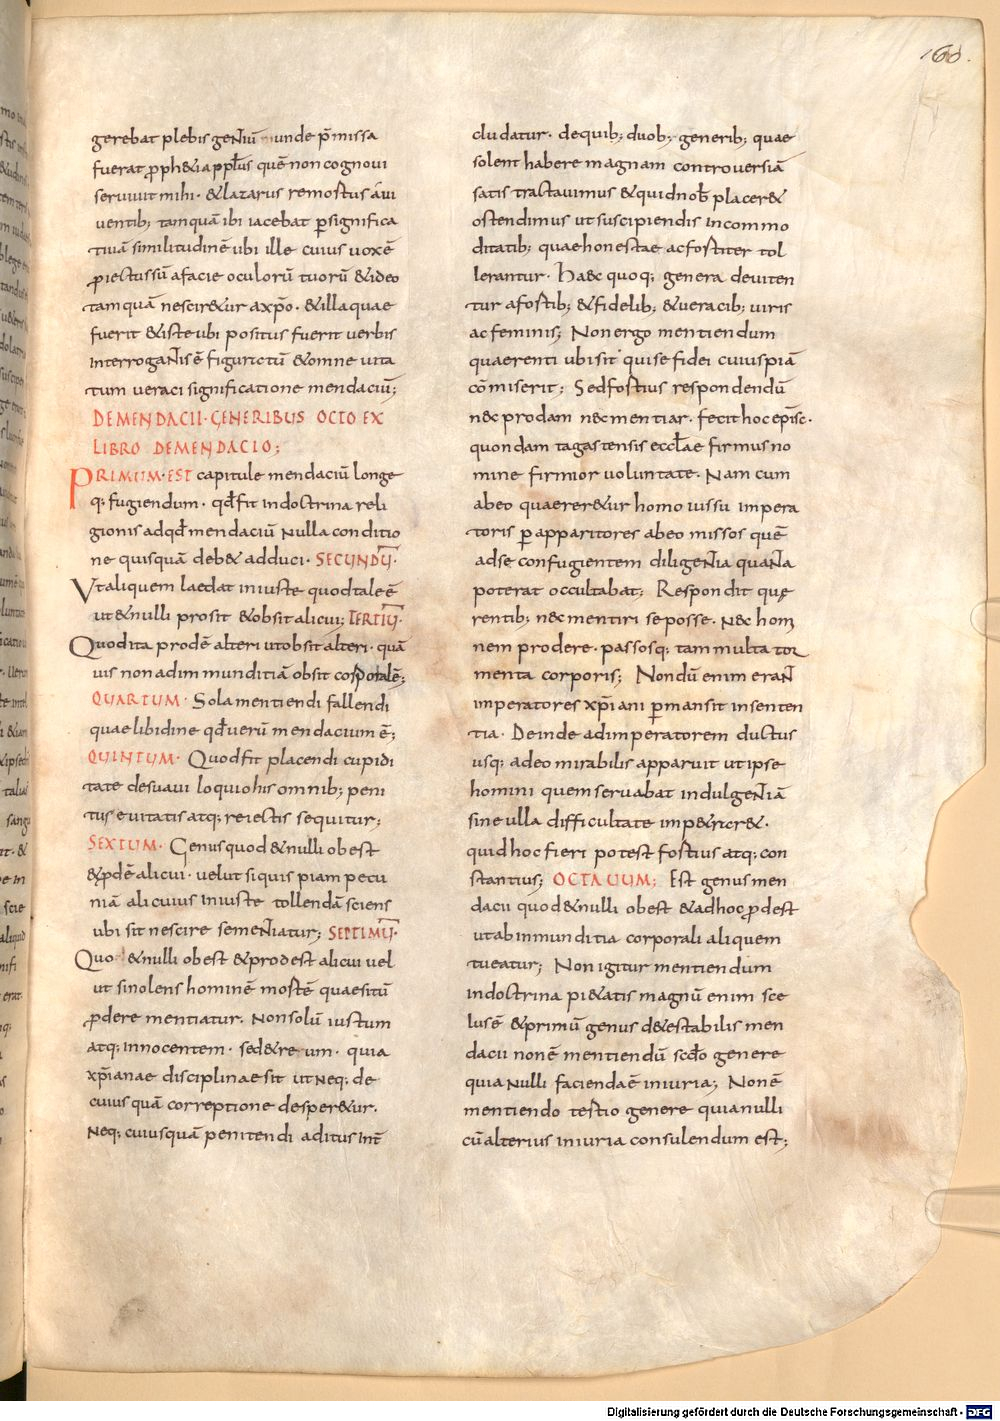 160.
gerebat plebis gentiū unde p̄missa
fuerat p̱ph&ia app̄lus quē non cognoui
seruiuit mihi · & lazarus remostus aui
uentib; tamquā ibi iacebat ꝑsignifica
tiuā similitudinē ubi ille cuius uoxē
ꝓiectus sū a facie oculorū tuorū & ideo
tamquā nescir&ur a xp̄o · & illa quae
fuerit & iste ubi positus fuerit uerbis
interrogantis ē figurictū & omne uita
tum ueraci significatione mendaciū;
DE MENDACII · GENERIBUS OCTO EX
LIBRO DE MENDACIO;
PRIMUM · EST capitule mendaciū longe
q; fugiendum · qđ fit in doctrina reli
gionis ad qđ mendaciū nulla conditio
ne quisquā deb& adduci · SECUNDŪ ·
Vt aliquem laedat iniuste quod tale ē
ut & nulli prosit & obsit alicui; TERTIŪ ·
Quod ita prodē alteri ut obsit alteri · quā
uis non ad inmunditiā obsit corporalē;
QUARTUM · Sola mentiendi fallendi
quae libidine qđ uerū mendacium ē;
QUINTUM · Quod fit placendi cupidi
tate de suaui loquio his omnib; peni
tus euitatis atq; reiectis sequitur;
SEXTUM · Genus quod & nulli obest
& ꝓdē alicui · uelut si quis piam pecu
niā alicuius iniuste tollendā sciens
ubi sit nescire se mentiatur; SEPTIMŪ ·
Quo & nulli obest & prodest alicui uel
ut si nolens hominē mostē quaesitū
ꝓdere mentiatur · Non solū iustum
atq; innocentem · sed & reum · quia
xp̄ianae disciplinae sit ut neq; de
cuius quā correptione desper&ur ·
Neq; cuiusquā penitendi aditus int̄
cludatur · de quib; duob; generib; quae
solent habere magnam controuersiā
satis tractauimus & quid nob̄ placer&
ostendimus ut suscipiendis incommo
ditatib; quae honestae ac fostiter tol
lerantur · Haec quoq; genera deuiten
tur a fostib; & fidelib; & ueracib; uiris
ac feminis; Non ergo mentiendum
quaerenti ubi sit quise fidei cuiuspiā
cō miserit; Sed fostius respondendū
nec prodam nec mentiar · fecit hoc ep̄isc ·
quondam tagastensis ecclae firmus no
mine firmior uoluntate · Nam cum
ab eo quaerer&ur homo iussu impera
toris ꝑ apparitores ab eo missos quē
ad se confugientem diligentia quanta
poterat occultabat; Respondit quę
rentib; nec mentiri se posse · Nec hom
nem prodere · passosq; tam multa tor
menta corporis; Nondū enim erant
imperatores xp̄iani ꝑmansit in senten
tia · Deinde ad imperatorem ductus
usq; adeo mirabilis apparuit ut ipse
homini quem seruabat indulgentiā
sine ulla difficultate imp&rer& ·
quid hoc fieri potest fostius atq; con
stantius; OCTAUUM; Est genus men
dacii quod & nulli obest & ad hoc ꝓdest
ut ab inmunditia corporali aliquem
tueatur; Non igitur mentiendum
in doctrina pi&atis magnū enim sce
lus ē & primū genus d&estabilis men
dacii non ē mentiendū scđo genere
quia nulli facienda ē iniuria; Non ē
mentiendo testio genere quia nulli
cū alterius iniuria consulendum est;
Digitalisierung gefördert durch die Deutsche Forschungsgemeinschaft - DFG